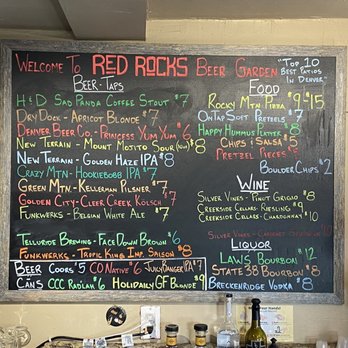 Welcome To RED ROCKS Beer Garden "Top 10 Best Patios in Denver"
Beer-Taps
H&D Sad Panda Coffee Stout $7
Dry Dock - Apricot Blonde $7
Denver Beer Co. - Princess Yum Yum $6
New Terrain - Mount Mojito Sour (NEW) $8
New Terrain - Golden Haze IPA $8
Crazy Mtn - Hookiebobb IPA $7
Green Mtn - Kellerman Pilsner $7
Golden City - Clear Creek Kölsch $7
Funkwerks - Belgian White Ale $7
Telluride Brewing - Face Down Brown $6
Funkwerks - Tropic King Imp. Saison $8
Beer Cans
Coors $5 CO Native $6 Juicy Banger IPA $7
CCC Radlah $6 Holidaily GF Blonde $9
Food
Rocky Mtn. Pizza $9-$15
OnTap Soft Pretzels $7
Happy Hummus Platter $8
Chips & Salsa $5
Pretzel Pieces
Boulder Chips $2
Wine
Silver Vines - Pinot Grigio $8
Creekside Cellars - Riesling $9
Creekside Cellars - Chardonnay $10
Silver Vines -
Liquor
Laws Bourbon $12
State 38 Bourbon $8
Breckenridge Vodka $8